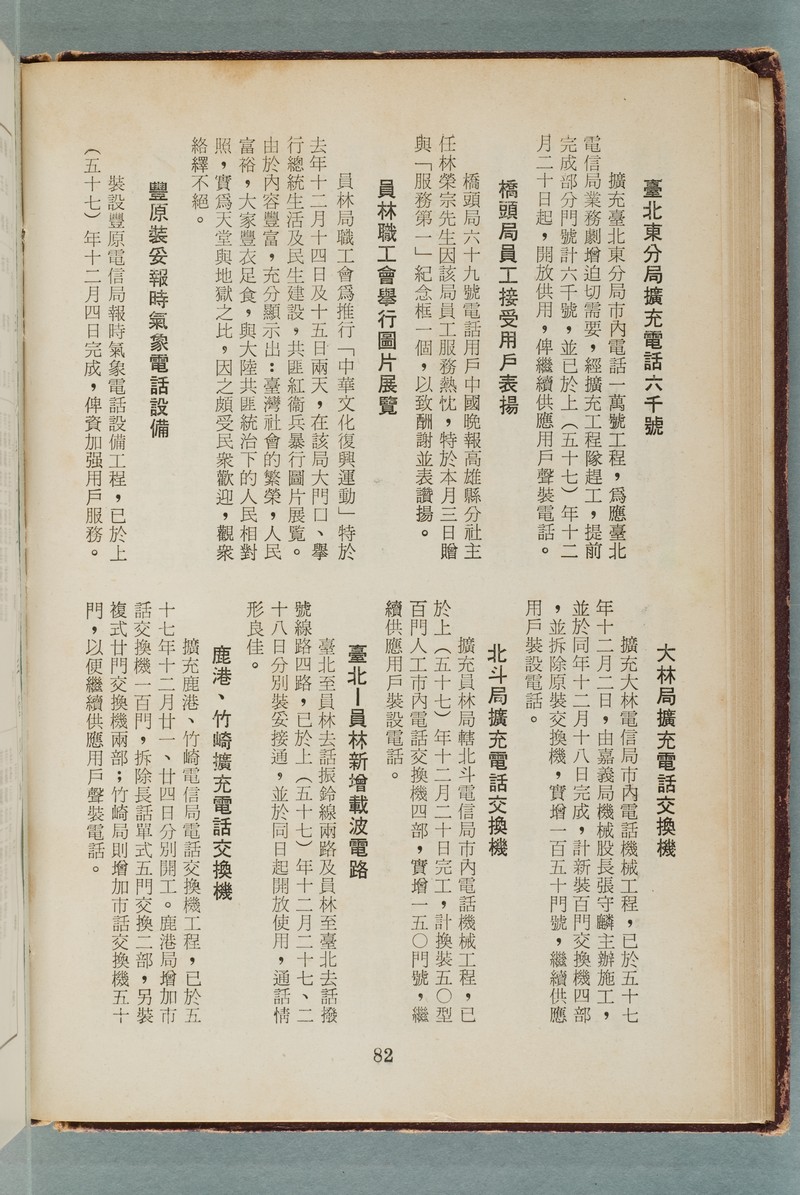 臺北東分局擴充電話六千號
擴充臺北東分局市內電話一萬號工程，爲應臺北
電信局業務劇增迫切需要，經擴充工程隊趕工，提前
完成部分門號計六千號，並已於上（五十七）年十二
月二十日起，開放供用，俾繼續供應用戶聲裝電話。
橋頭局員工接受用戶表揚
橋頭局六十九號電話用戶中國晚報高雄縣分社主
任林榮宗先生因該局員工服務熱忱，特於本月三日贈
與「服務第一」紀念框一個，以致酬謝並表讚揚。
員林職工會舉行圖片展覽
員林局職工會爲推行「中華文化復興運動」特於
去年十二月十四日及十五日兩天，在該局大門口、舉
行總統生活及民生建設，共匪紅衞兵暴行圖片展覽。
由於內容豐富，充分顯示出：臺灣社會的繁榮，人民
富裕，大家豐衣足食，與大陸共匪統治下的人民相對
照，實爲天堂與地獄之比，因之頗受民衆歡迎，觀衆
絡繹不絕。
豐原裝妥報時氣象電話設備
裝設豐原電信局報時氣象電話設備工程，已於上
（五十七）年十二月四日完成，俾資加强用戶服務。
大林局擴充電話交換機
擴充大林電信局市內電話機械工程，已於五十七
年十二月二日，由嘉義局機械股長張守麟主辦施工，
並於同年十二月十八日完成，計新裝百門交換機四部
，並拆除原裝交換機，實增一百五十門號，繼續供應
用戶裝設電話。
北斗局擴充電話交換機
擴充員林局轄北斗電信局市內電話機械工程，已
於上（五十七）年十二月二十日完工，計換裝五〇型
百門人工市內電話交換機四部，實增一五〇門號，繼
續供應用戶裝設電話。
臺北—員林新增載波電路
臺北至員林去話振鈴線兩路及員林至臺北去話撥
號線路四路，已於上（五十七）年十二月二十七、二
十八日分別裝妥接通，並於同日起開放使用，通話情
形良佳。
鹿港、竹崎擴充電話交換機
擴充鹿港、竹崎電信局電話交換機工程，已於五
十七年十二月廿一、廿四日分別開工。鹿港局增加市
話交換機一百門，拆除長話單式五門交換二部，另裝
複式廿門交換機兩部；竹崎局則增加市話交換機五十
門，以便繼續供應用戶聲裝電話。
82